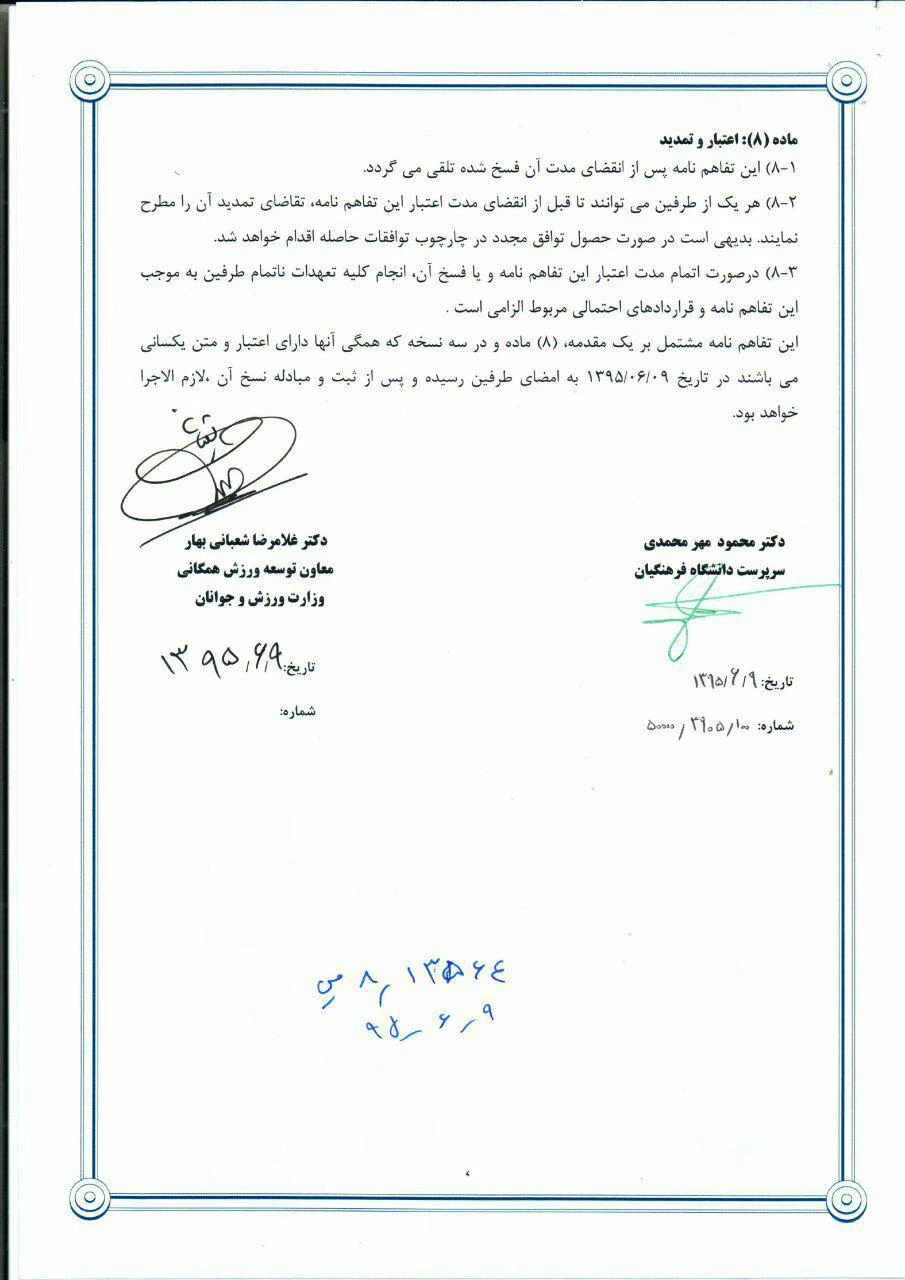 ماده (۸): اعتبار و تمدید
۸-۱) این تفاهم نامه پس از انقضای مدت آن فسخ شده تلقی می گردد.
۸-۲) هر یک از طرفین می توانند تا قبل از انقضای مدت اعتبار این تفاهم نامه، تقاضای تمدید آن را مطرح
نمایند. بدیهی است در صورت حصول توافق مجدد در چارچوب توافقات حاصله اقدام خواهد شد.
۸-۳) درصورت اتمام مدت اعتبار این تفاهم نامه و یا فسخ آن، انجام کلیه تعهدات ناتمام طرفین به موجب
این تفاهم نامه و قراردادهای احتمالی مربوط الزامی است .
این تفاهم نامه مشتمل بر یک مقدمه، (۸) ماده و در سه نسخه که همگی آنها دارای اعتبار و متن یکسانی
می باشند در تاریخ ۱۳۹۵/۰۶/۰۹ به امضای طرفین رسیده و پس از ثبت و مبادله نسخ آن ،لازم الاجرا
خواهد بود.
دکتر محمود مهر محمدی
سرپرست دانشگاه فرهنگیان
تاریخ: ۱۳۹۵/۶/۹
شماره: ۵۰۰۰۰/۳۹۰۵/۱۰۰
دکتر غلامرضا شعبانی بهار
معاون توسعه ورزش همگانی
وزارت ورزش و جوانان
تاریخ: ۱۳۹۵/۶/۹
شماره:
۹۵/۶/۹